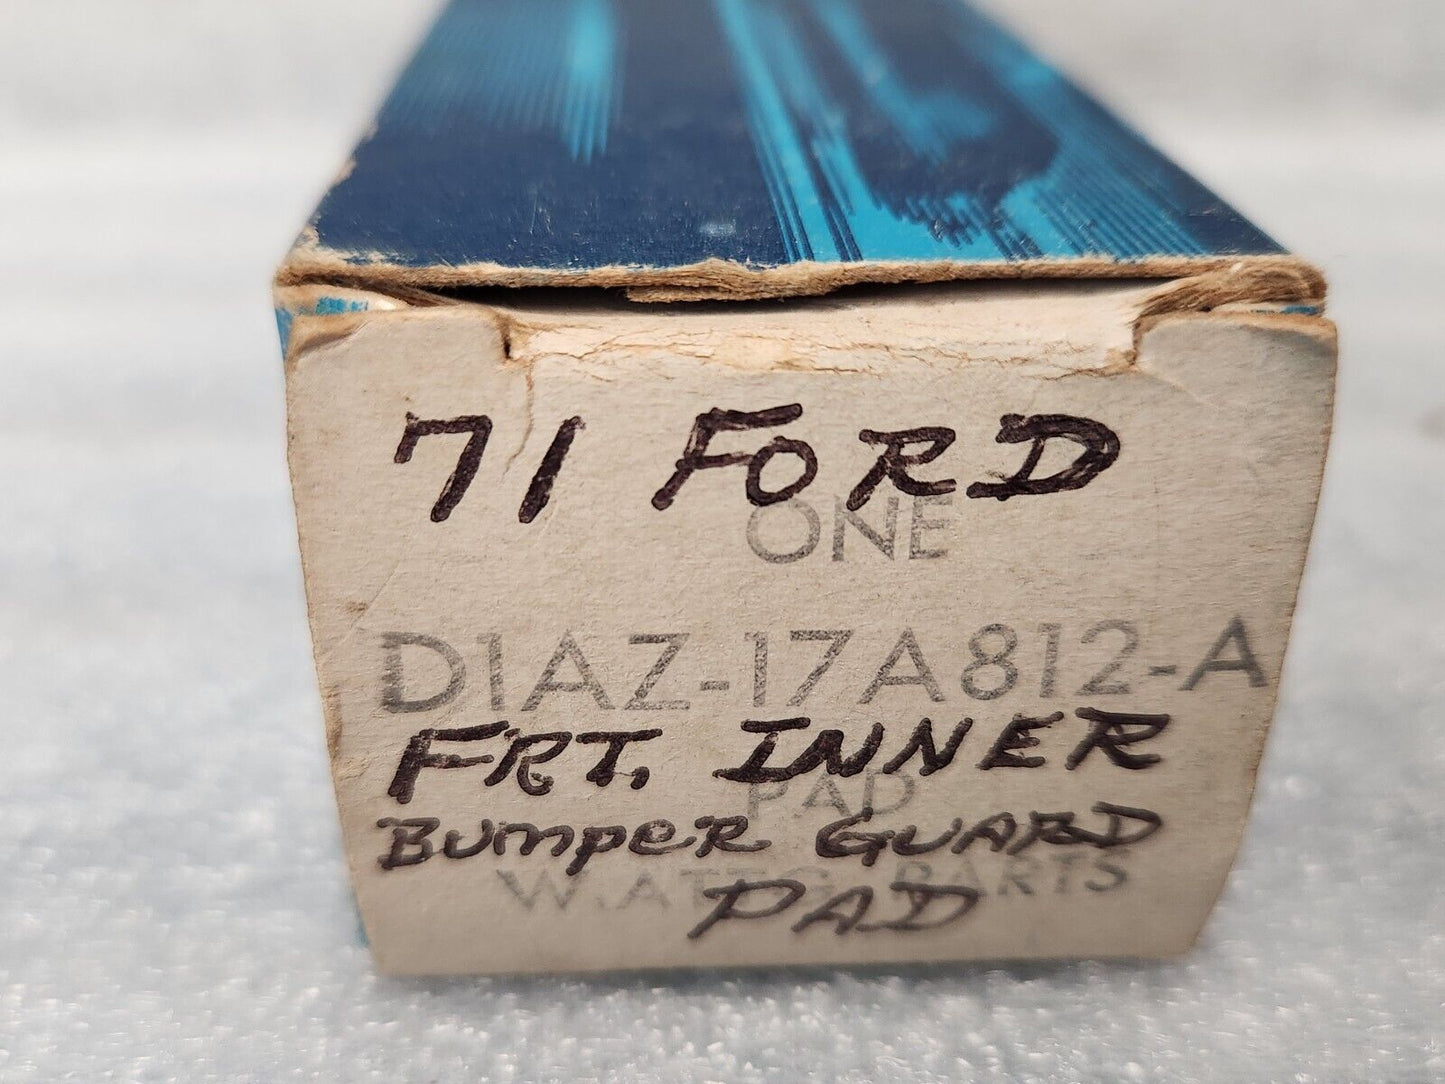 71 FORD
ONE
D1AZ-17A812-A
FRT. INNER
PAD
BUMPER GUARD
W.ATTG. PARTS
PAD